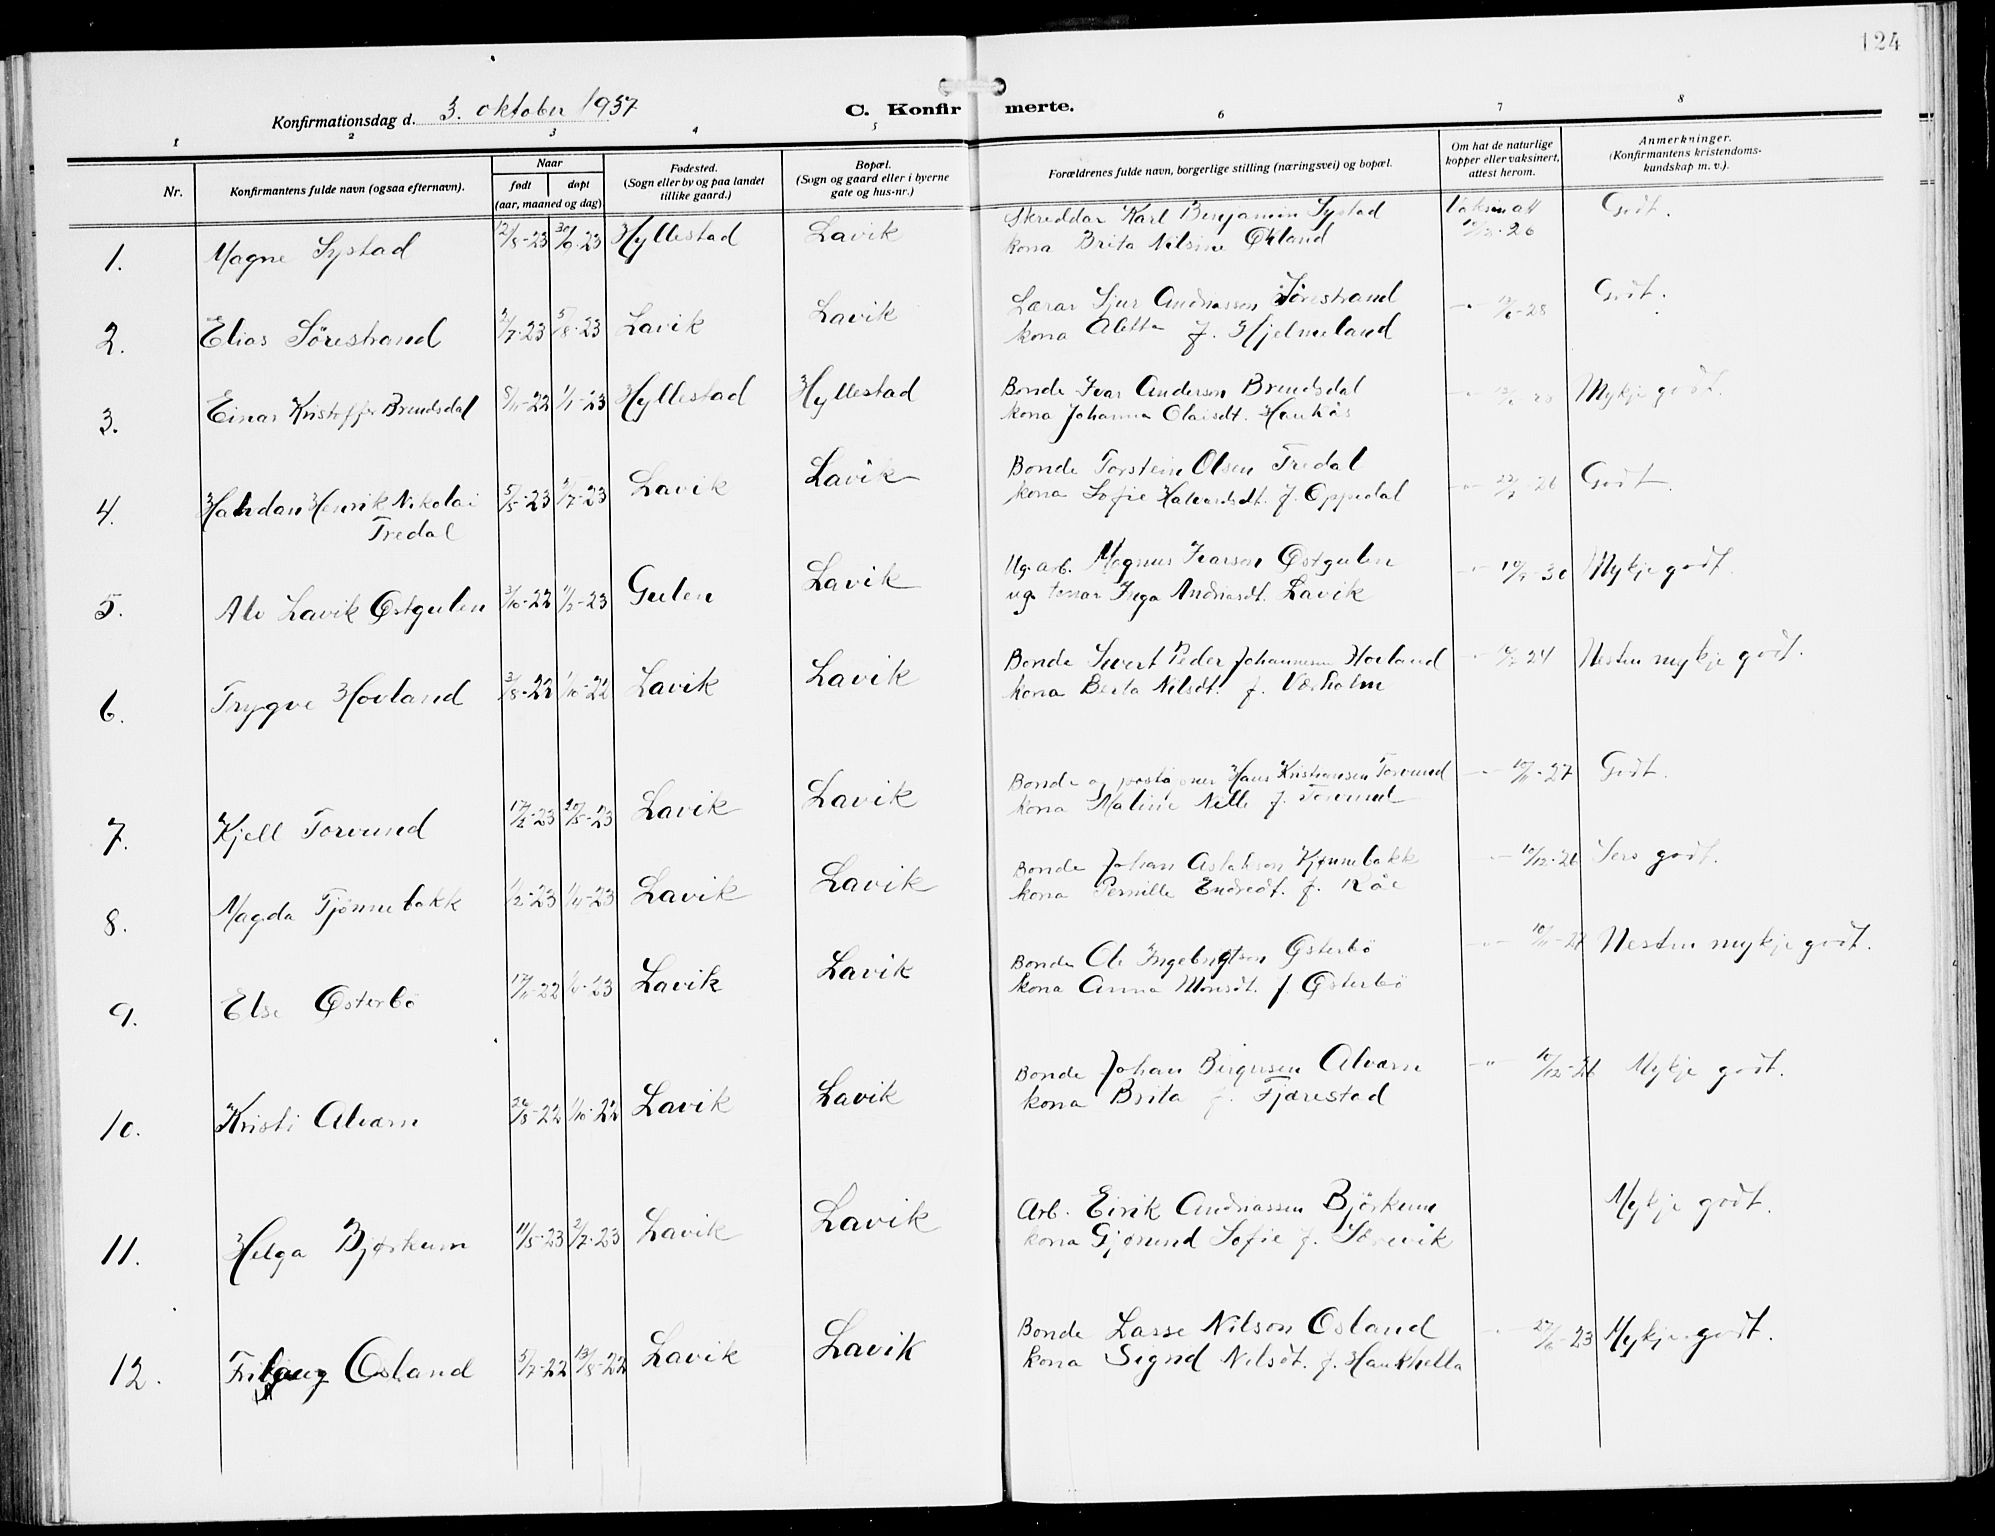 124
Konfirmationsdag d. 3. oktober 1937
C. Konfirmerte.
1 2 3 4 5 6 7 8
Nr.
Konfirmantens fulde navn (ogsaa efternavn).
Naar
født døpt
(aar, maaned og dag)
Fødested.
(Sogn eller by og paa landet
tillike gaard.)
Bopæl.
(Sogn og gaard eller i byerne
gate og hus-nr.)
Forældrenes fulde navn, borgerlige stilling (næringsvei) og bopæl.
Om hat de naturlige
kopper eller vaksinert,
attest herom.
Anmerkninger.
(Konfirmantens kristendoms-
kundskap m. v.).
1. Magne Systad 12/8-23 30/9-23 Hyllestad Lavik
Skreddar Karl Benjamin Systad
kona Brita Nilsine Økland
Godt.
2. Elias Sørestrand 2/7-23 5/8-23 Lavik Lavik
Lærar Sjur Andriassen Sørestrand
kona Aletta f. Hjelmeland
Godt.
3. Einar Kristoffer Brendsdal 8/11-22 1/1-23 Hyllestad Hyllestad
Bonde Ivar Anderson Brendsdal
kona Johanna Olaisdt. Haukås
Mykje godt.
4. Halvdan Henrik Nikolai
Tredal
5/5-23 2/7-23 Lavik Lavik
Bonde Torstein Olsen Tredal
kona Sofie Halvardsdt. f. Oppedal
Godt.
5. Alv Lavik Østgulen 3/10-22 1/2-23 Gulen Lavik
Ug. arb. Magnus Ivarson Østgulen
ug. Inga Andriasdt. Lavik
Mykje godt.
6. Trygve Hovland 3/8-22 1/10-22 Lavik Lavik
Bonde Sivert Peder Johannesen Hovland
kona Berta Nilsdt. f. Værholm
Nesten mykje godt.
7. Kjell Torvund 17/2-23 20/5-23 Lavik Lavik
Bonde og Hans Kristiansen Torvund
kona Maline f. Torvund
10/11-27 Godt.
8. Magda Tjønnebakk 1/2-23 1/4-23 Lavik Lavik
Bonde Johan Kjønnebakk
kona Pernille Endredt. f. Råe
10/12-26 Sers godt.
9. Else Østerbø 17/11-22 23 Lavik Lavik
Bonde Ole Ingebrigtsen Østerbø
kona Anna Monsdt. f Østerbø
10/11-27 Nesten mykje godt.
10. Kristi Alværn 26/8-22 1/10-22 Lavik Lavik
Bonde Johan Birgersen Alværn
kona Brita f. Fjærestad
10/12-26 Mykje godt.
11. Helga Bjørkum 11/5-23 2/7-23 Lavik Lavik
Arb. Eirik Andriassen Bjørkum
kona Gjørund Sofie f. Sørevik
Mykje godt.
12. Osland 5/7-22 13/8-22 Lavik Lavik
Bonde Lasse Nilson Osland
kona Signd Nilsdt. f. Haukhella
Mykje godt.